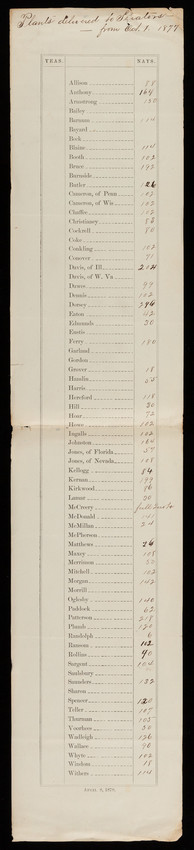 Plants delivered to Senators
— from Oct. 1. 1877
YEAS. NAYS.
Allison
Anthony 164
Armstrong
Bailey
Barnum
Bayard
Beck
Blaine 114
Booth 102
Bruce
Burnside
Butler 126
Cameron, of Penn 102
Cameron, of Wis 102
Chaffee 102
Christiancy
Cockrell 80
Coke
Conkling 102
Conover 71
Davis, of Ill 204
Davis, of W. Va
Dawes 97
Dennis 102
Dorsey 296
Eaton 42
Edmunds 30
Eustis
Ferry 180
Garland
Gordon
Grover 18
Hamlin
Harris
Hereford 118
Hill 30
Hoar 72
Howe 102
Ingalls 102
Johnston 164
Jones, of Florida 57
Jones, of Nevada 108
Kellogg 84
Kernan 199
Kirkwood 96
Lamar 30
McCreery
McDonald
McMillan 24
McPherson
Matthews 26
Maxey 108
Merrimon
Mitchell 102
Morgan 142
Morrill
Oglesby 140
Paddock 62
Patterson 218
Plumb 120
Randolph 6
Ransom 102
Rollins 90
Sargent 104
Saulsbury
Saunders 122
Sharon
Spencer 120
Teller 107
Thurman 105
Voorhees 30
Wadleigh 126
Wallace 96
Whyte 102
Windom 18
Withers 114